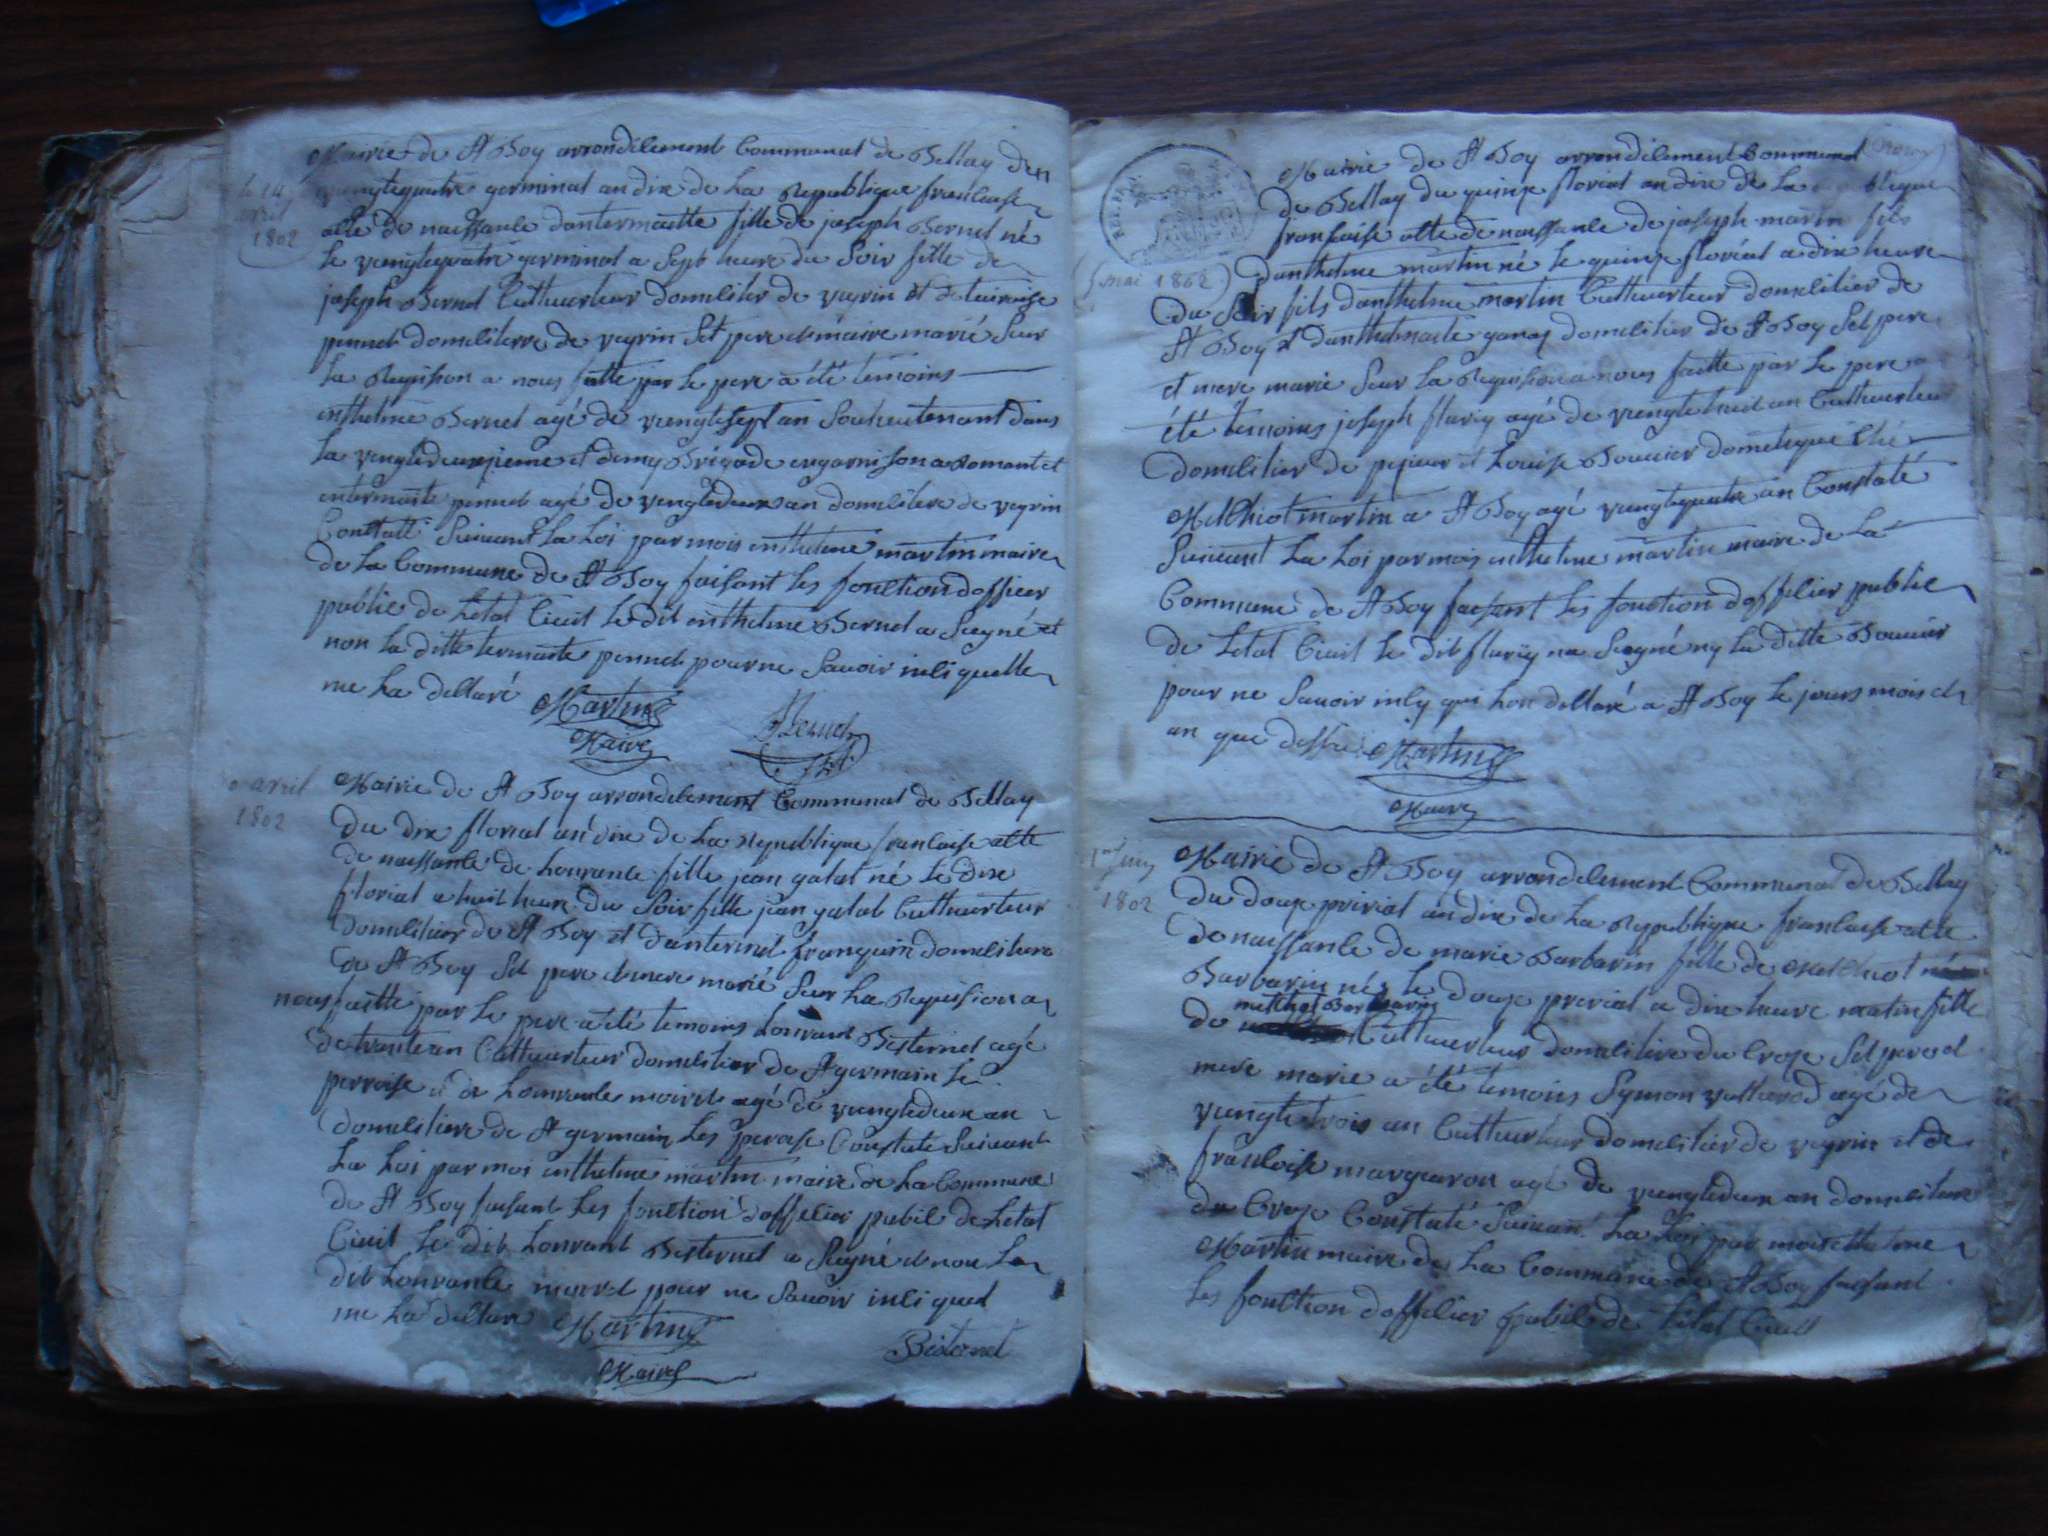 Mairie de St Boy arrondicement Communal de Bellay du
vengtequatre germinal an dix de La Republique francaise
acte de naissance dantermette fille de joseph Bernet né
le vengtequatre germinal a Sept heure du Soir fille de
joseph Bernet Cultuerteur domicilier de veyrin et de
pennet domiciliere de veyrin Set pere et maire marié Sur
La Requision a nous faitte par le pere a été temoins
enthelme Bernet agé de vengtesept an Soulieutenant dans
La vengtedeuxjieme et demy Brigade engarnison a Romant et
entermette pennet agé de vengtedeux an domiciliere de veyrin
Constatté Suivant La Loi par mois enthelme martin maire
de La Commune de St Boy faisant les fonction dofficer
publie de Letat Civil le dit enthelme Bernet a Siegné et
non la ditte termette pennet pour ne Savoir inci quelle
me La dellaré Martin
Maire
avril
1802
Mairie de St Boy arrondicement Communal de Bellay
du dix florial an dix de La Republique francaise acte
de naissance de Lourance fille jean galat né le dix
florial a huit heure du Soir fille jean galat Cultuerteur
domicilier de St Boy et danternet franquin domiciliere
de St Boy Set pere et mere marié Sur La Requision a
nous faitte par le pere a été temoins Lourant Besternet agé
de trante an Cultuerteur domicilier de St germain Le
perroise et de Lourance moiret agé de vengtedeux an
domiciliere de St germain Les peroise Constate Suivant
La Loi par moi enthelme martin maire de La Commune
de St Boy faisant Les fonction dofficier pubil de Letat
Civil le dit Lourant Besternet a Siegné et non La
dit Lourance moiret pour ne Savoir inci quel
me La dellaré Martin
Maire Besternet
Mairie de St Boy arrondicement Communal
de Bellay du quinze florial an dix de La
francaise acte de naissance de joseph martin fils
5 mai 1802 danthelme martin né le quinze florial a dix heure
du Soir fils danthelme martin Cultuerteur domicilier de
St Boy et danthelmette domicilier de St Boy Set pere
et mere marié Sur La Requision a nous faitte par le pere a
été temoins joseph flavy agé de vengtehuit an Cultuerteur
domicilier de pejieu et Louise Bouvier dometique Ché
Melchiot martin a St Boy agé vengtequatre an Constaté
Suivant La Loi par moi enthelme martin maire de La
Commune de St Boy faisant les fonction dofficier publie
de Letat Civil le dit flavy na Siegné ny la ditte Bouvier
pour ne Savoir incy qui Lon dellaré a St Boy le jours mois et
an que dessu Martin
Maire
1802
Mairie de St Boy arrondicement Communal de Bellay
du douze prerial an dix de La Republique francaise acte
de naissance de marie Barbarin fille de Melchiot
Barbarin née le douze prerial a dix heure matin fille
de melchiot Barbarin Cultuerteur domiciliere du Croze Set pere et
mere marié a été temoins Symon vullierod agé de
vengtetrois an Cultuerteur domicilier de veyrin et de
francoise marguaron agé de vengtedeux an domiciliere
du Croze Constaté Suivant La Loi par moi enthelme
Martin maire de La Commune de St Boy faisant
Les fonction dofficier pubil de Letat Civil